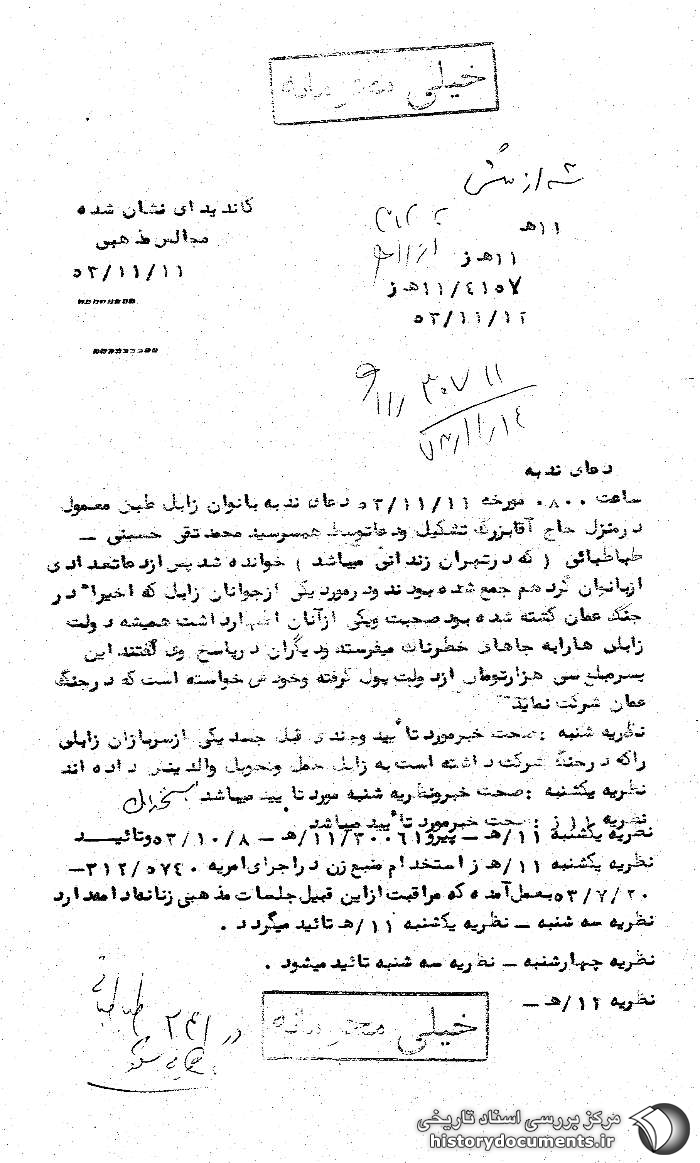 خیلی محرمانه
کاندیدای نشان شده
مجالس مذهبی
۵۳/۱۱/۱۱
۱۱هـ
۱۱هـ ز
۱۱/۴۱۵۷هـ ز
۵۳/۱۱/۱۲
۳۰۷ ۱۱
۵۳/۱۱/۱۴
دعای ندبه
ساعت ۰۸۰۰ مورخه ۵۳/۱۱/۱۱ دعای ندبه بانوان زابل طبق معمول
در منزل حاج آقابزرگ تشکیل و دعا توسط همسر سید محمد تقی حسینی –
طباطبائی ( که در تهران زندانی میباشد ) خوانده شد پس از دعا تعدادی
از بانوان گرد هم جمع شده بودند و در مورد یکی از جوانان زابل که اخیرا" در
جنگ عمان کشته شده بود صحبت ویکی از آنان اظهار داشت همیشه دولت
زابلی ها را به جاهای خطرناک میفرستد و دیگران در پاسخ وی گفتند این
پسر مبلغ سی هزار تومان از دولت پول گرفته و خودش خواسته است که در جنگ
عمان شرکت نماید"
نظریه شنبه : صحت خبر مورد تأیید و چندی قبل جسد یکی از سربازان زابلی
را که در جنگ شرکت داشته است به زابل حمل و تحویل والدینش داده اند
نظریه یکشنبه : صحت خبر و نظریه شنبه مورد تا یید میباشد
نظریه ۱۱ ز : صحت خبر مورد تا یید میباشد
نظریه یکشنبه ۱۱/هـ – پیرو ۱۱/۳۰۰۶۱/هـ – ۵۳/۱۰/۸ و تائیـــد
نظریه یکشنبه ۱۱/هـ ز استخدام منبع زن در اجرای امریه ۳۱۲/۵۷۴۰–
۵۳/۷/۲۰ بعمل آمده که مراقبت از این قبیل جلسات مذهبی زنانه ادامه دارد
نظریه سه شنبه – نظریه یکشنبه ۱۱/هـ تائید میگردد .
نظریه چهارشنبه – نظریه سه شنبه تائید میشود .
نظریه ۱۲/هـ –
خیلی محرمانه
در ۲۴۱ طباطبائی
مرکز بررسی اسناد تاریخی
historydocuments.ir